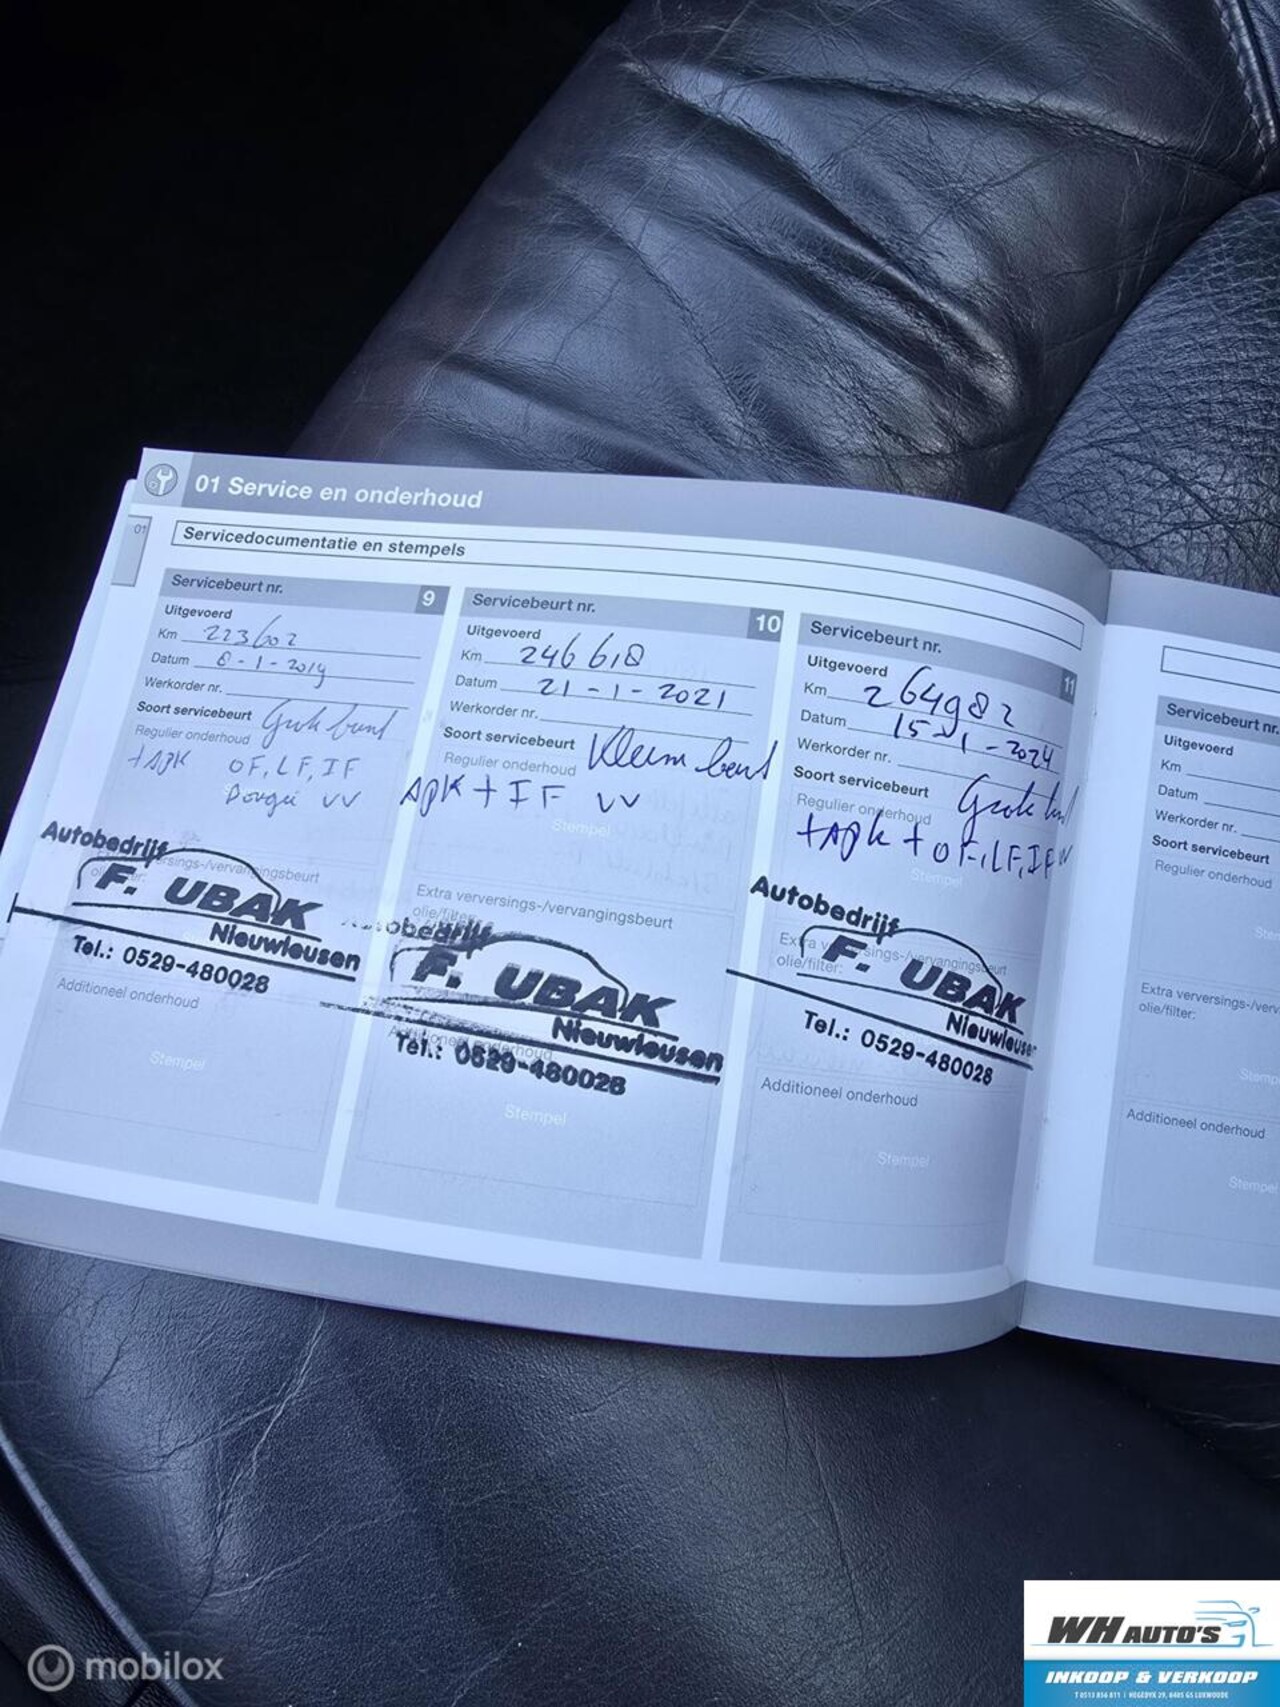 01 Service en onderhoud
01
Servicedocumentatie en stempels
Servicebeurt nr. 9
Uitgevoerd
Km 223602
Datum 8-1-2019
Werkorder nr.
Soort servicebeurt Grote beurt
Regulier onderhoud
+APK OF, LF, IF
Bougie VV
Autobedrijf
F. UBAK
Nieuwleusen
Tel.: 0529-480028
Additioneel onderhoud
Stempel
Servicebeurt nr. 10
Uitgevoerd
Km 246618
Datum 21-1-2021
Werkorder nr.
Soort servicebeurt Kleine beurt
Regulier onderhoud
APK + IF VV
Stempel
Extra verversings-/vervangingsbeurt
olie/filter:
Autobedrijf
F. UBAK
Nieuwleusen
Tel.: 0529-480028
Additioneel onderhoud
Stempel
Servicebeurt nr. 11
Uitgevoerd
Km 264982
Datum 15-1-2024
Werkorder nr.
Soort servicebeurt Grote beurt
Regulier onderhoud
+APK + OF, LF, IF
Stempel
Autobedrijf
Extra verversings-/vervangingsbeurt
olie/filter:
F. UBAK
Nieuwleusen
Tel.: 0529-480028
Additioneel onderhoud
Stempel
Servicebeurt nr.
Uitgevoerd
Km
Datum
Werkorder nr.
Soort servicebeurt
Regulier onderhoud
Extra verversings-/verv
olie/filter:
Stemp
Additioneel onderhoud
Stempel
mobilox
WH AUTO'S
INKOOP & VERKOOP
T 0513 856 811 | HEGEDYK 29, 8405 GS LUXWOUDE